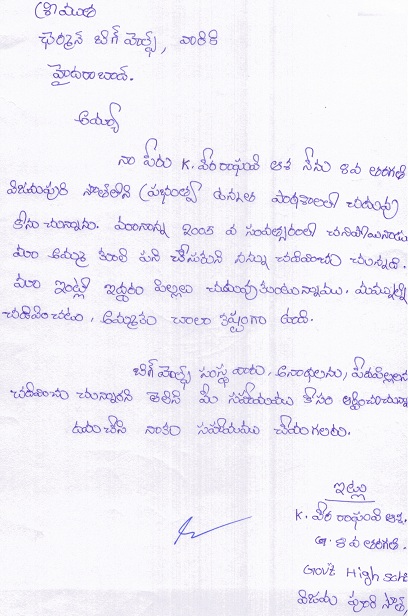 శ్రీయుత
ఛైర్మన్ బిగ్ హెల్ప్స్, వారికి
హైదరాబాద్.
అయ్యా
నా పేరు K. వీర రాఘవి ఆశ నేను 8వ తరగతి
విజయపురి సౌత్‌లోని ప్రభుత్వ ఉన్నత పాఠశాలలో చదువు
కొను చున్నాను. మానాన్న 2005 వ సంవత్సరంలో చనిపోయినాడు
మా అమ్మ కూలి పని చేసుకుని నన్ను చదివించు చున్నది.
మా ఇంట్లో ఇద్దరం పిల్లలు చదువుకుంటున్నాము. మమ్మల్ని
చదివించటం, అమ్మకు చాలా కష్టంగా ఉంది.
బిగ్ హెల్ప్స్ సంస్థ వారు, అనాథలను, పేదపిల్లలను
చదివించు చున్నారని తెలిసి మీ సహాయము కోసం అర్థించుచున్నా
దయచేసి నాకు సహాయము చేయగలరు.
ఇట్లు
K. వీర రాఘవి ఆశ.
8 వ తరగతి.
Govt High sch
విజయ పురి సౌత్,